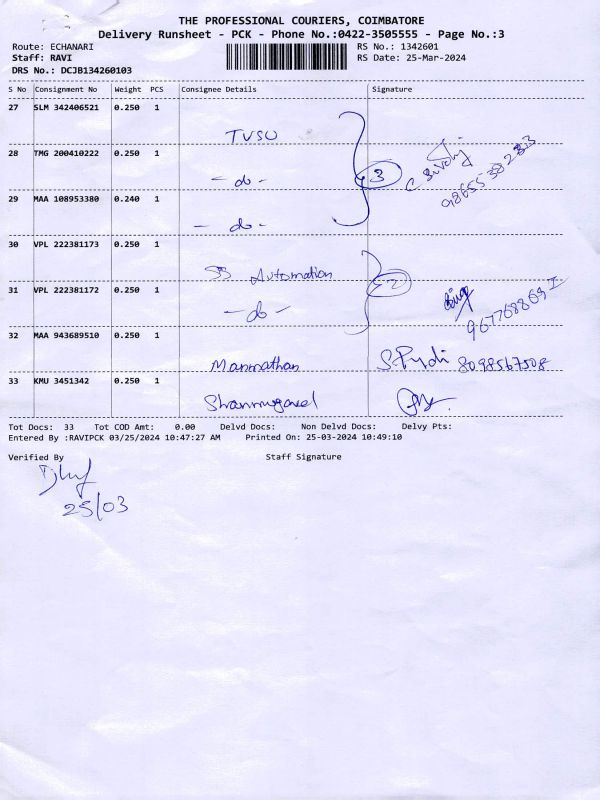 THE PROFESSIONAL COURIERS, COIMBATORE
Delivery Runsheet - PCK - Phone No.:0422-3505555 - Page No.:3
Route: ECHANARI
Staff: RAVI
DRS No.: DCJB134260103
RS No.: 1342601
RS Date: 25-Mar-2024
S No Consignment No Weight PCS Consignee Details Signature
27 SLM 342406521 0.250 1
TVSU
28 TMG 200410222 0.250 1
- do - 3
29 MAA 108953380 0.240 1
- do -
30 VPL 222381173 0.250 1
SS Automation
31 VPL 222381172 0.250 1 2
- do -
32 MAA 943689510 0.250 1
Manmathan 8098567508
33 KMU 3451342 0.250 1
Shanmugavel
Tot Docs: 33 Tot COD Amt: 0.00 Delvd Docs: Non Delvd Docs: Delvy Pts:
Entered By :RAVIPCK 03/25/2024 10:47:27 AM Printed On: 25-03-2024 10:49:10
Verified By Staff Signature
25/03